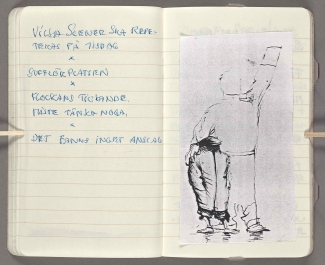 VILKA SCENER SKA REPE-
TERAS PÅ TISDAG
*
SUFFLÖRPLATSEN
*
ROCKANS TICKANDE.
MÅSTE TÄNKA NOGA.
*
DET FANNS INGET ANSLAG